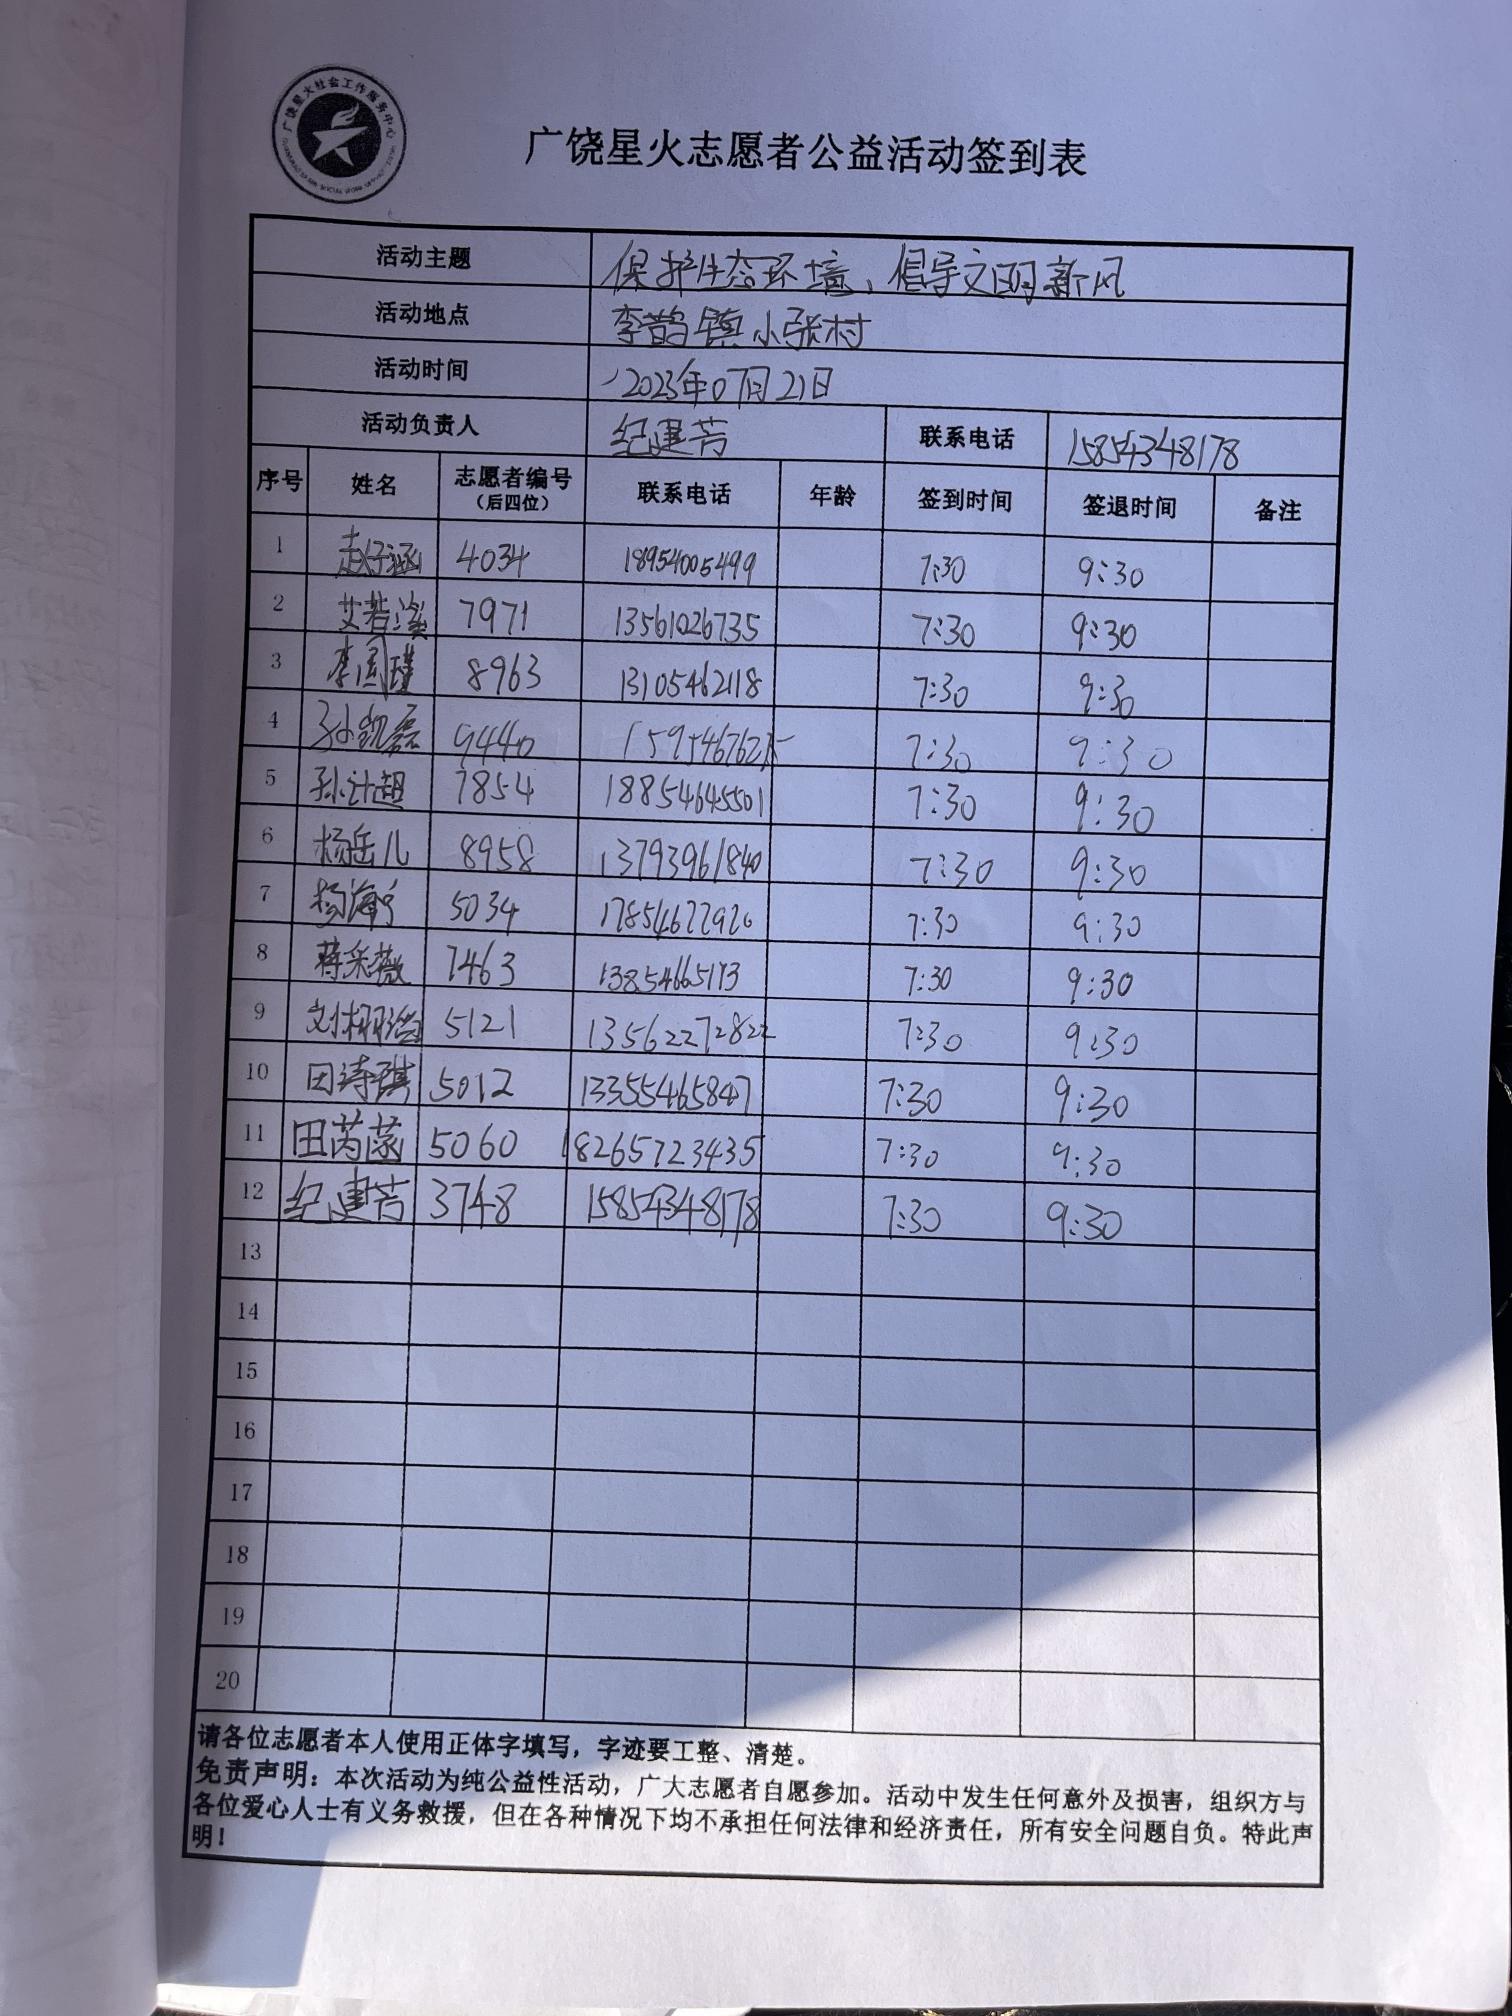 广饶星火社会工作服务中心
广饶星火志愿者公益活动签到表
活动主题 保护生态环境、倡导文明新风
活动地点 李鹊镇小张村
活动时间 2023年07月21日
活动负责人 纪建芳 联系电话 15854348178
序号 姓名 志愿者编号（后四位） 联系电话 年龄 签到时间 签退时间 备注
1 赵仔涵 4034 18954005499 7:30 9:30
2 艾若溪 7971 13561026735 7:30 9:30
3 李国瑾 8963 13105462118 7:30 9:30
4 孙凯磊 9440 7:30 9:30
5 孙计超 7854 18854645501 7:30 9:30
6 杨岳儿 8958 13793961840 7:30 9:30
7 5034 17854622920 7:30 9:30
8 蒋采薇 7463 13854665173 7:30 9:30
9 5121 13562272822 7:30 9:30
10 田诗琪 5012 13355465847 7:30 9:30
11 田芮菡 5060 18265723435 7:30 9:30
12 纪建芳 3748 15854348178 7:30 9:30
13
14
15
16
17
18
19
20
请各位志愿者本人使用正体字填写，字迹要工整、清楚。
免责声明：本次活动为纯公益性活动，广大志愿者自愿参加。活动中发生任何意外及损害，组织方与
各位爱心人士有义务救援，但在各种情况下均不承担任何法律和经济责任，所有安全问题自负。特此声
明！